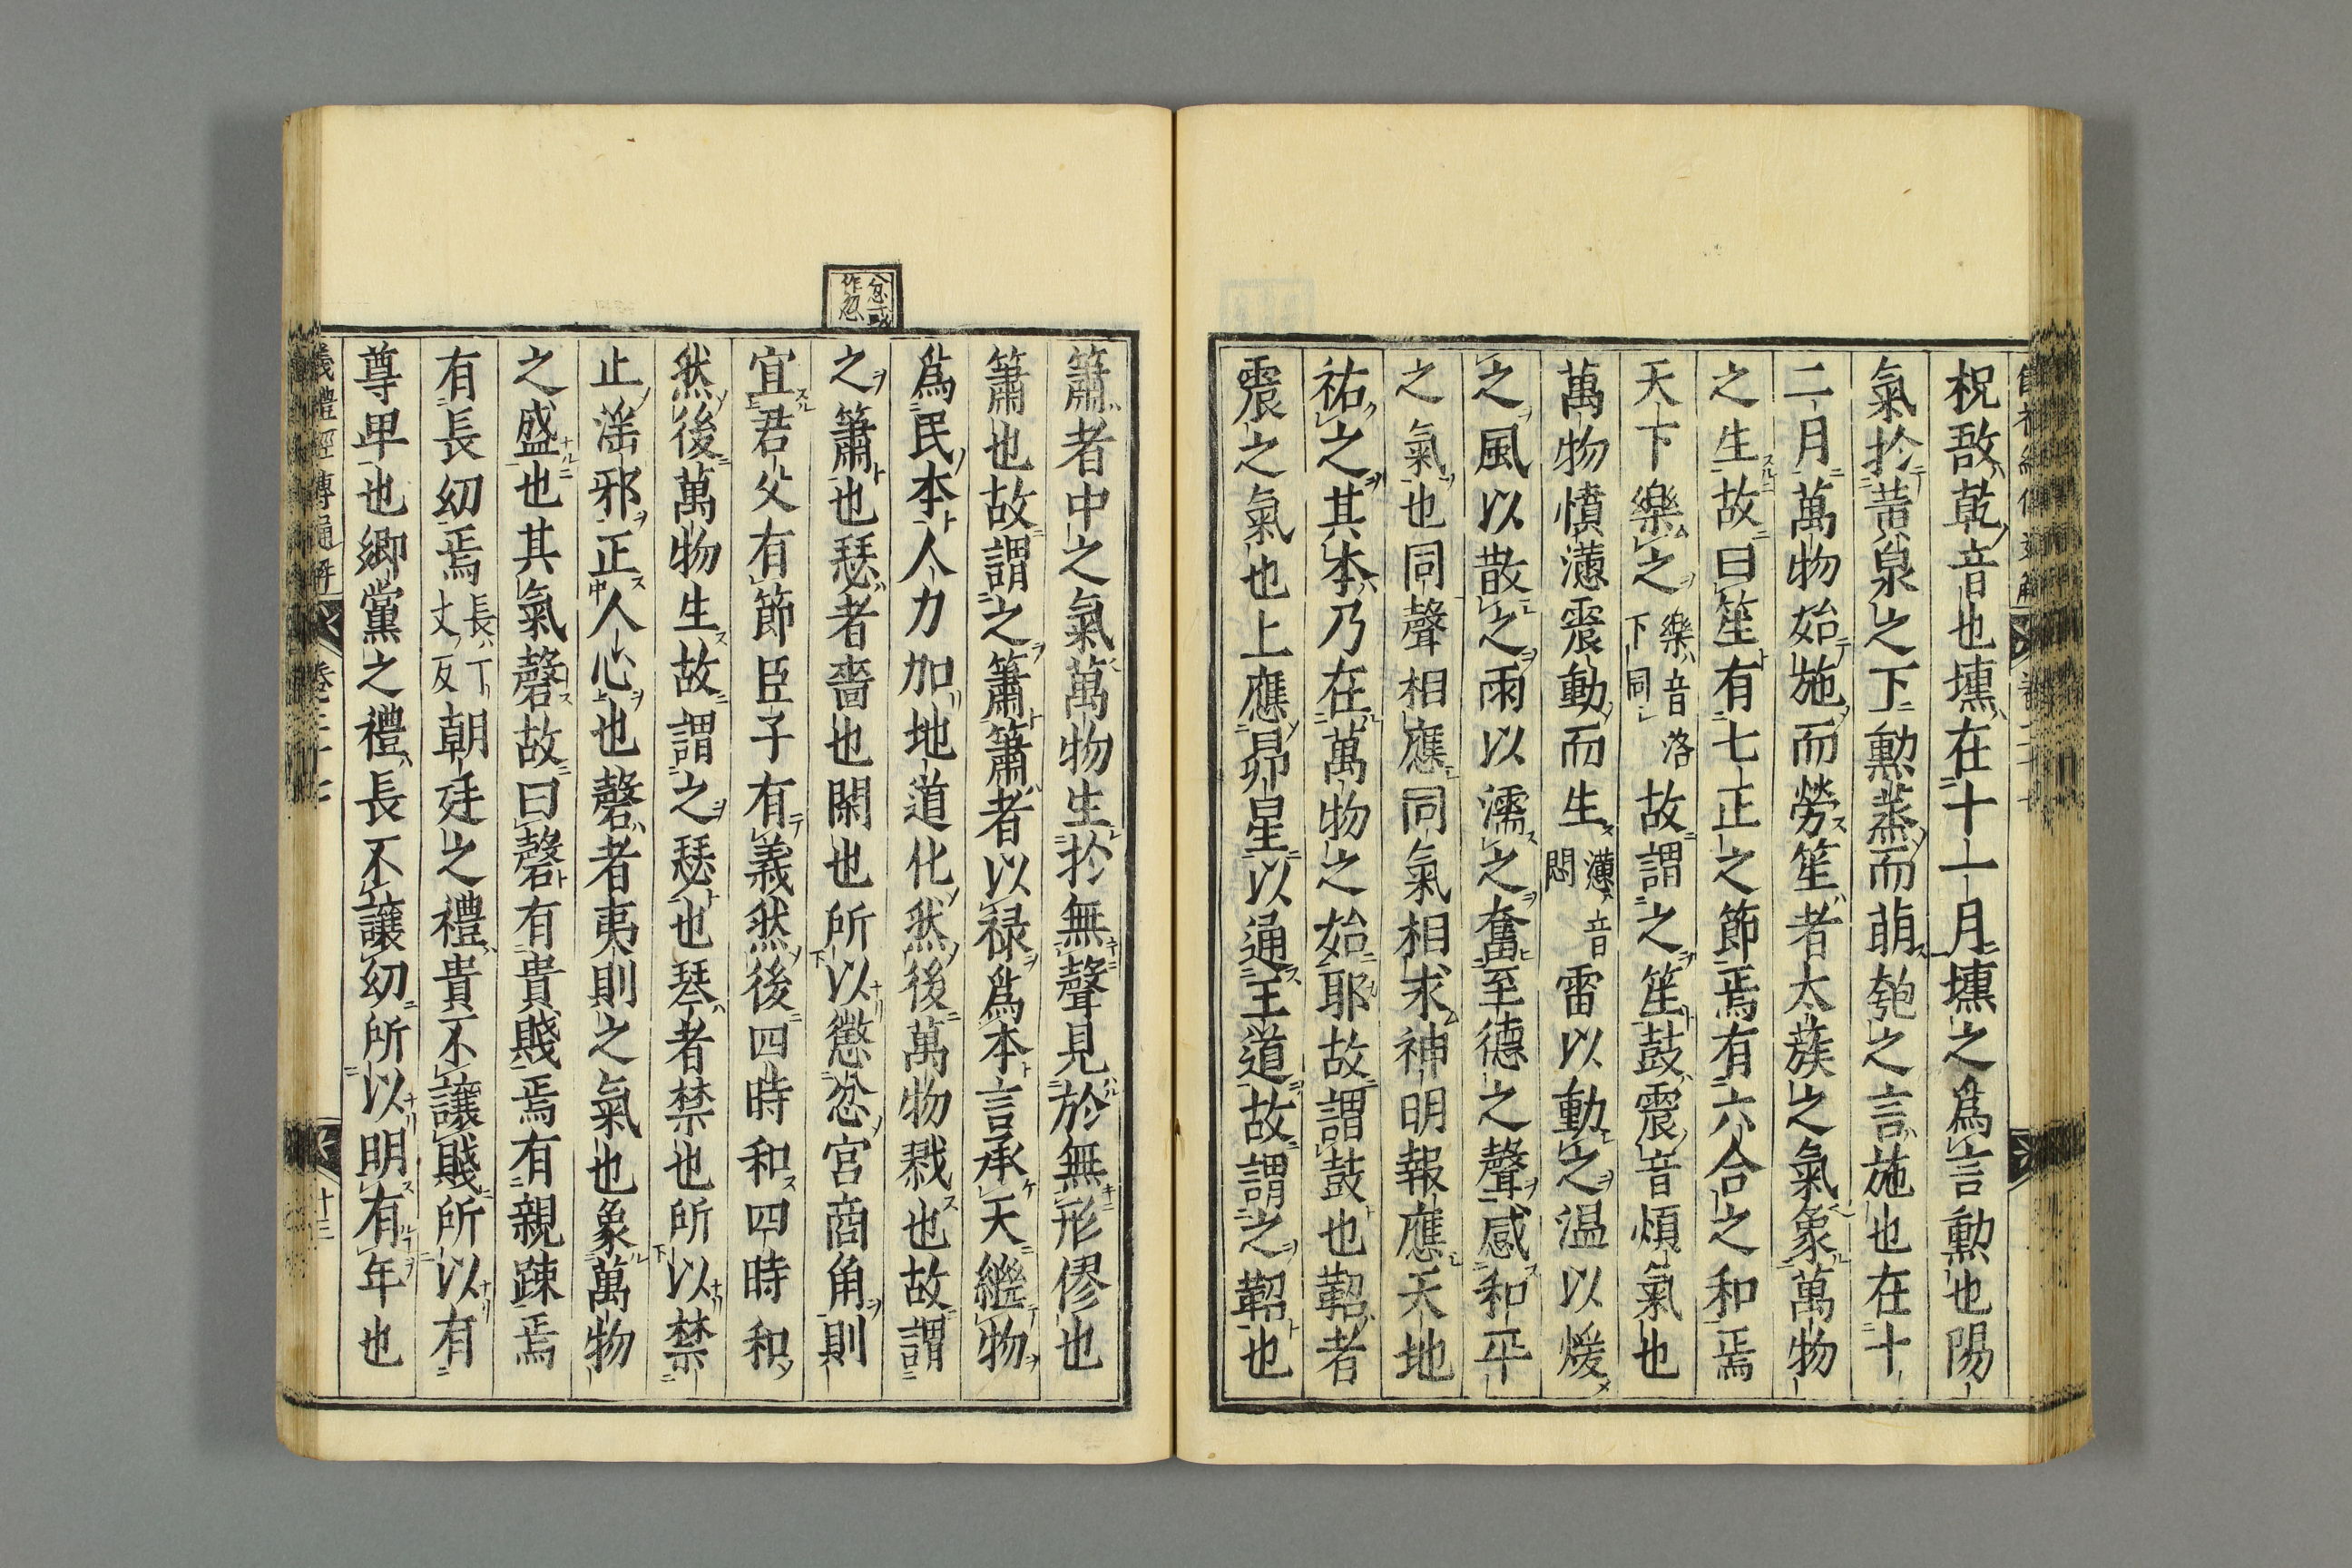 柷敔乾音也壎在十一月壎之爲言勲也陽
氣於黄泉之下勲蒸而萌匏之言施也在十
二月萬物始施而勞笙者太蔟之氣象萬物
之生故曰笙有七正之節焉有六合之和焉
天下樂之樂音洛下同故謂之笙鼓震音煩氣也
萬物憤懣震動而生懣音悶雷以動之温以煖
之風以散之雨以濡之奮至德之聲感和平
之氣也同聲相應同氣相求神明報應天地
祐之其本乃在萬物之始耶故謂鼓也鞀者
震之氣也上應昴星以通王道故謂之鞀也
簫者中之氣萬物生於無聲見於無形僇也
簫也故謂之簫簫者以禄爲本言承天繼物
爲民本人力加地道化然後萬物戮也故謂
之簫也瑟者嗇也閑也所以懲忿宮商角則
宜君父有節臣子有義然後四時和四時和
然後萬物生故謂之瑟也琴者禁也所以禁
止滛邪正人心也磬者夷則之氣也象萬物
之盛也其氣磬故曰磬有貴賤焉有親踈焉
有長幼焉長丁丈反朝廷之禮貴不讓賤所以有
尊卑也郷黨之禮長不讓幼所以明有年也
儀禮經傳通解
卷二十七
十三